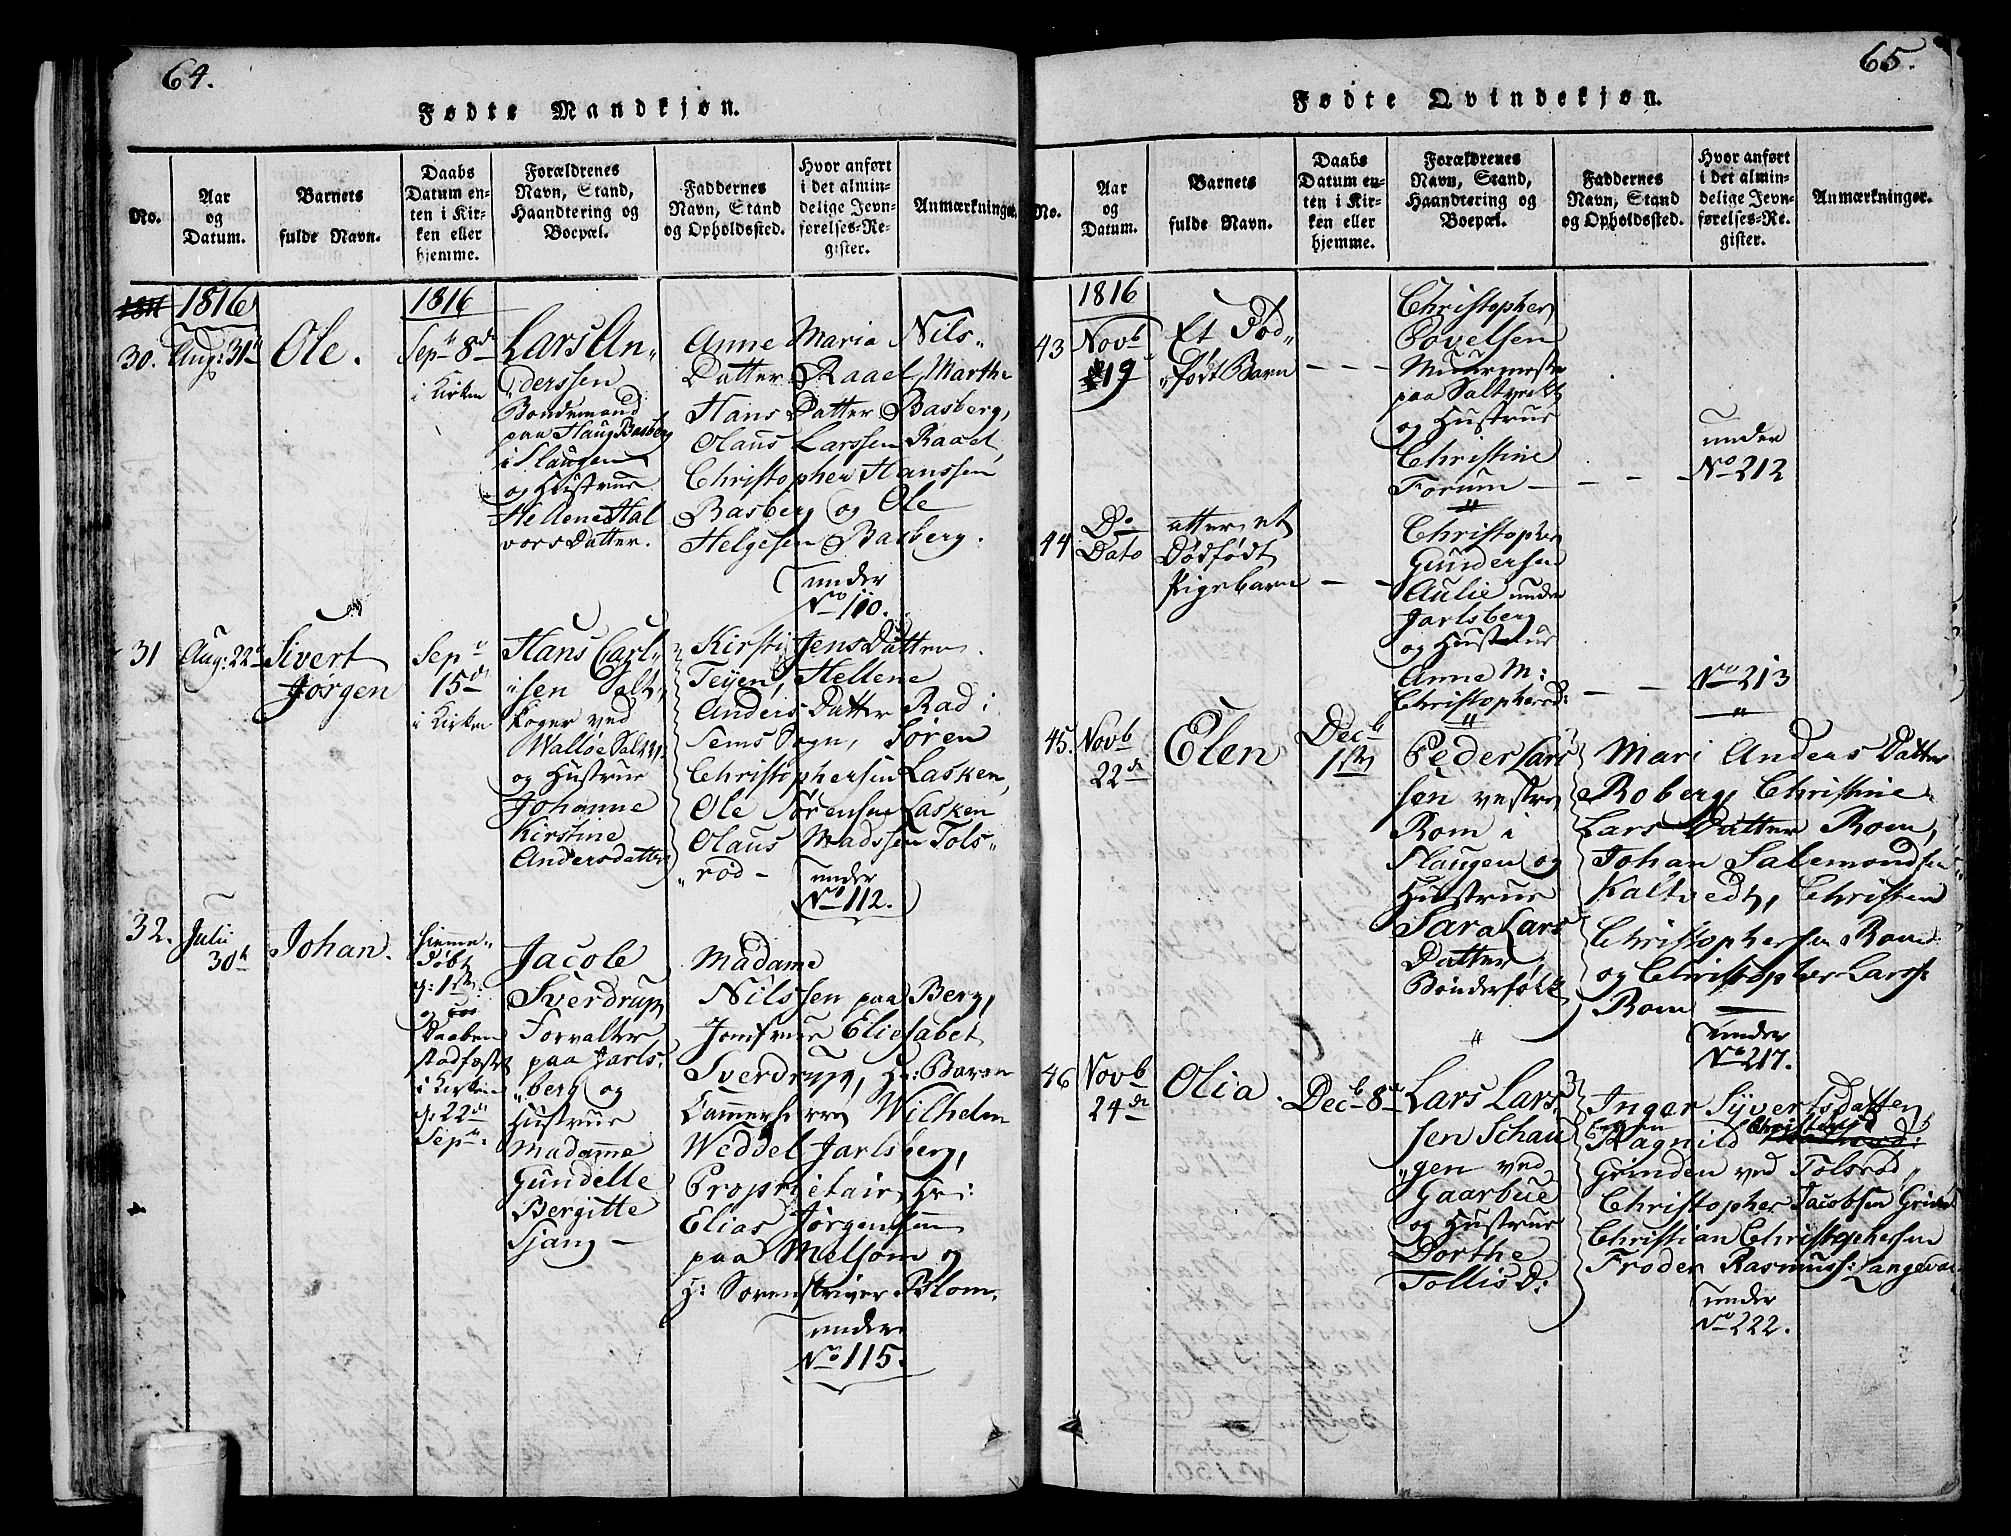 64.
Fødte Mandkjøn.
No.
Aar
og
Datum.
Barnets
fulde Navn.
Daabs
Datum en-
ten i Kir-
ken eller
hjemme.
Forældrenes
Navn, Stand,
Haandtering og
Boepæl.
Faddernes
Navn, Stand
og Opholdssted.
Hvor anført
i det almin-
delige Jevn-
førelses-Re-
gister.
Anmærkninger.
1816
1816
30.
Aug: 31
Ole.
Sep 8de
i Kirken
Lars An-
derssen
Bondemand
paa Haug Basberg
i Slaugen
og Hustrue
Hellene Hal
vors Datter.
Anne Maria Nils-
Datter Raael, Marthe
Hans Datter Basberg,
Olaus Larssen Raael,
Christopher Hanssen
Basberg og Ole
Helgesen Basberg.
under
No 110.
31
Aug: 22
Sivert
Jørgen
Sep
15de
i Kirken
Hans Carl-
sen Salt-
koger ved
Walløe Saltv.
og Hustrue
Johanne
Kirstine
Andersdatter
Kirsti Jens Datter
Teyen, Hellene
Anders Datter Rad i
Sems Sogn, Søren
Christophersen Lasken,
Ole Sørensen Lasken
Olaus Madssen Tols-
rød -
under
No 112.
32.
Julii
30te
Johan.
hieme-
døbt
d: 1ste
og
Daaben
stadfæst
i Kirken
d: 22de
Sep
Jacob
Sverdrup
Forvalter
paa Jarls-
berg og
Hustrue
Madamme
Gundelle
Bergitte
Siang -
Madame
Nilssen paa Berg,
Jomfrue Eliesabet
Sverdrup, Hr: Baron
Cammerherre Wilhelm
Weddel Jarlsberg,
Proprietair Hr:
Elias Jørgensen
paa Melsom og
H: Sorenskriver Blom.
under
No 115.
65.
Fødte Qvindekjøn.
No.
Aar
og
Datum.
Barnets
fulde Navn.
Daabs
Datum en-
ten i Kir-
ken eller
hjemme.
Forældrenes
Navn, Stand,
Haandtering og
Boepæl.
Faddernes
Navn, Stand
og Opholdssted.
Hvor anført
i det almin-
delige Jevn-
førelses-Re-
gister.
Anmærkninger.
1816
43
Novb
19
Et Død-
født Barn
Christopher
Povelsen
Muurmester
paa Saltverket
og Hustrue
Christine
Forum -
under
No 212
44
Do
Dato
atter et
Dødfødt
Pigebarn
Christopher
Gundersen
Aulie under
Jarlsberg
og Hustrue
Anne M:
Christophersd:
No 213
45.
Novb
22de
Elen
Decb
1ste
Peder Lars
sen vestre
Rom i
Slaugen og
Hustrue
Sara Lars
Datter,
Bønderfolk
Mari Anders Datter
Roberg, Christine
Lars Datter Rom,
Johan Salemondsen
Kaltvedt, Christen
Christophersen Rom
og Christopher Larss:
Rom
under
No 217.
46
Novb
24de
Olia.
Decb 8de
Lars Lars-
sen Schau
gen ved
Gaarbue
og Hustrue
Dorthe
Tollis D:
Inger Syvertsdatter
Ragnild
Grinden ved Tolsrød,
Christopher Jacobsen Grinden
Christian Christophersen
Froder Rasmuss: Langevar
under
No 222.